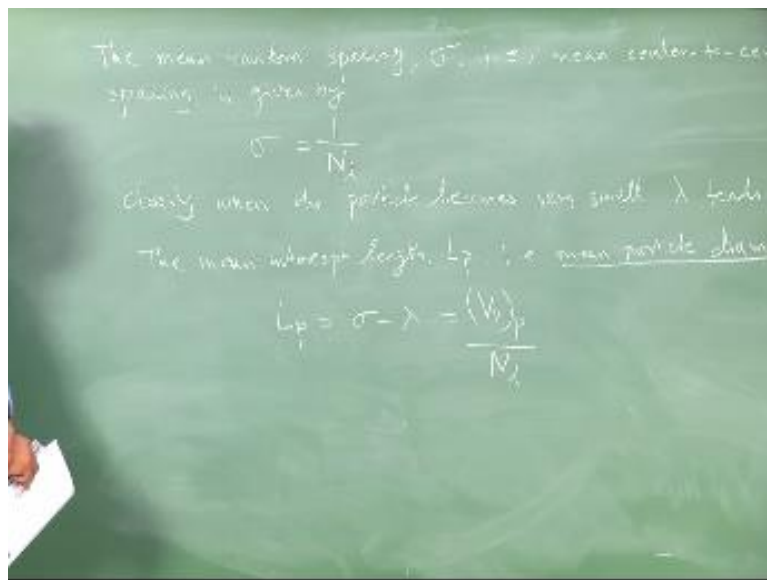 The mean random spacing, σ, i.e., mean center-to-ce
spacing is given by
σ = 1/N_L
Clearly when the particle becomes very small λ tends
The mean intercept length, L_p i.e mean particle diam
L_p = σ - λ = (V_v)_p/N_L